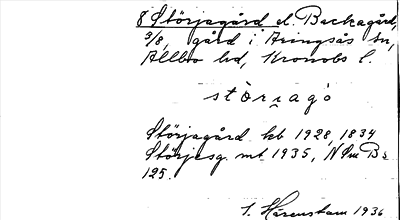 8 Störjagård el. Backagård,
3/8, gård i Aringsås sn,
Allbo hd, Kronobs l.
stòrjagò
Störjagård kb 1928, 1834
Störjesg. mt 1935, N Sm B s
125.
I. Hårenstam 1936